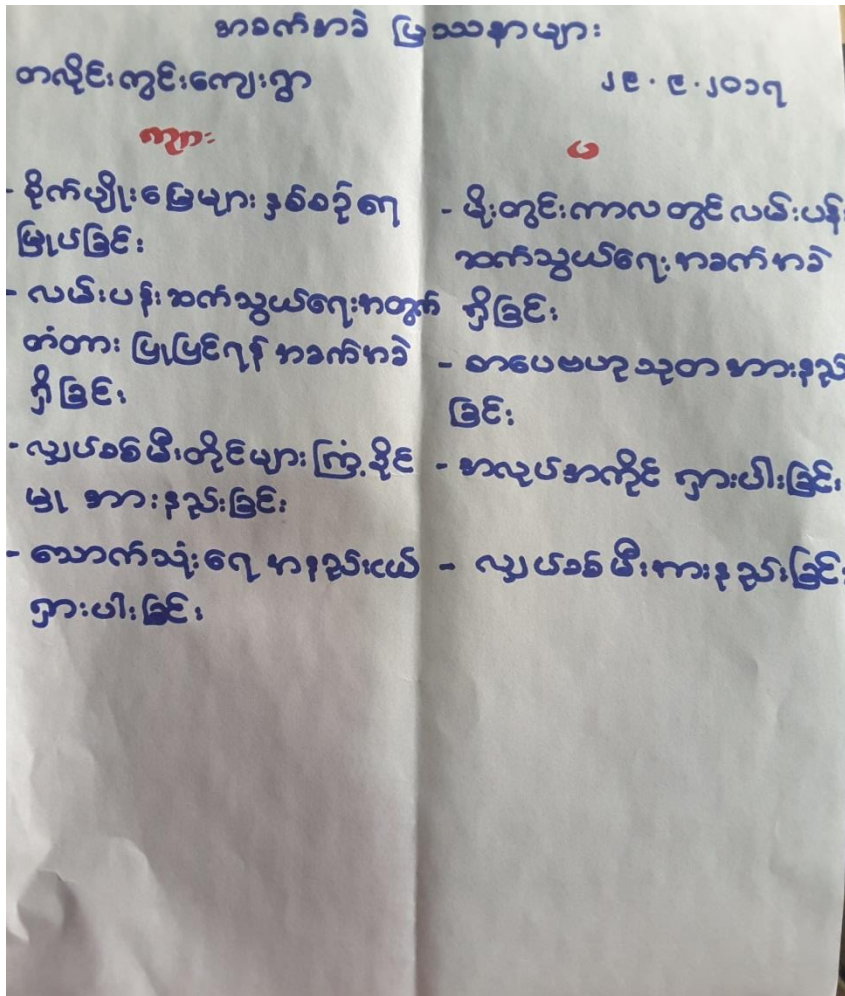 အခက်အခဲ ပြဿနာများ
တလိုင်းကွင်းကျေးရွာ ၂၉.၉.၂၀၁၇
ကျား
မ
- စိုက်ပျိုးမြေများ နှစ်စဉ်ရေ
မြုပ်ခြင်း
- လမ်းပန်းဆက်သွယ်ရေးအတွက်
တံတား ပြုပြင်ရန် အခက်အခဲ
ရှိခြင်း
- လျှပ်စစ်မီးတိုင်များ ကြံ့ခိုင်
မှု အားနည်းခြင်း
- သောက်သုံးရေ အနည်းငယ်
ရှားပါးခြင်း
- မိုးတွင်းကာလတွင် လမ်းပန်း
ဆက်သွယ်ရေးအခက်အခဲ
ရှိခြင်း
- စာပေဗဟုသုတ အားနည်း
ခြင်း
- အလုပ်အကိုင် ရှားပါးခြင်း
- လျှပ်စစ်မီးအားနည်းခြင်း